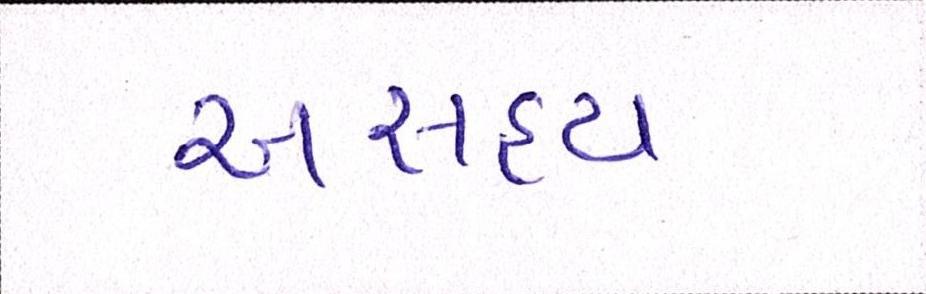 અસહ્ય